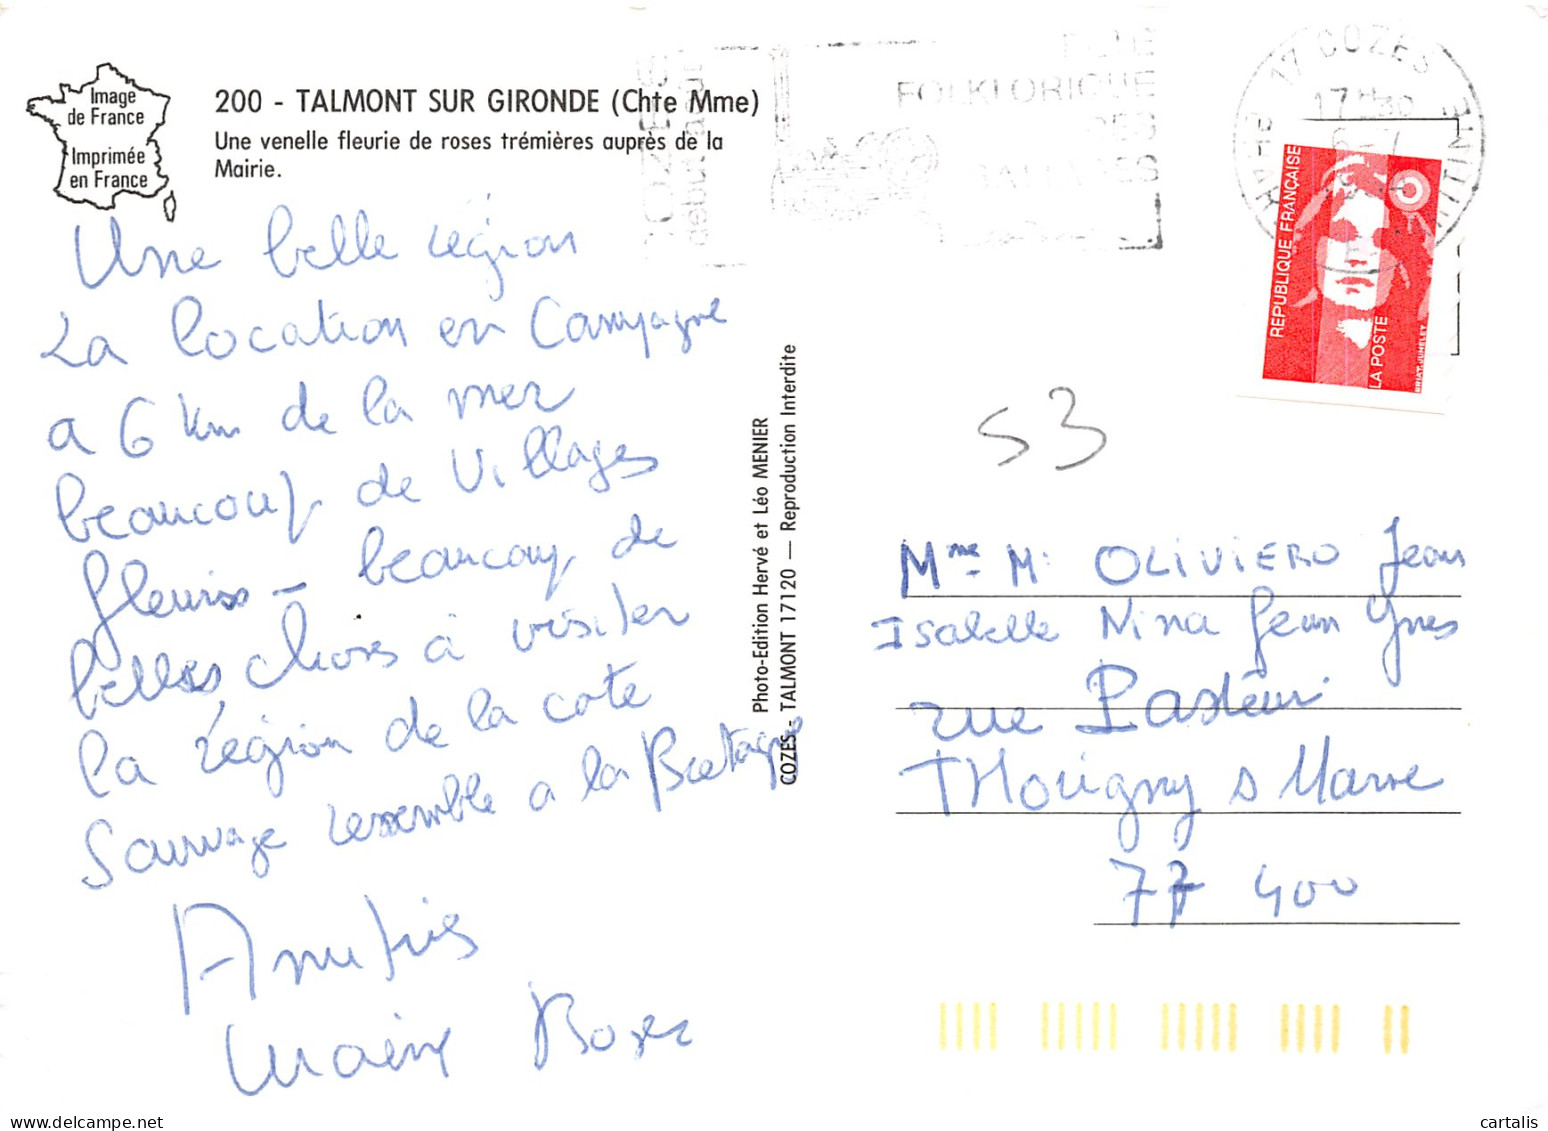 Image
de France
Imprimée
en France
200 - TALMONT SUR GIRONDE (Chte Mme)
Une venelle fleurie de roses trémières auprès de la
Mairie.
Une belle région
La location en Campagne
a 6 km de la mer
beaucoup de Villages
fleuris - beaucoup de
belles choses à visiter
la région de la cote
Sauvage ressemble a la Bretagne
Amitiés
Photo-Edition Hervé et Léo MENIER
COZES - TALMONT 17120 — Reproduction Interdite
FOLKLORIQUE
17 COZES
17H30
REPUBLIQUE FRANÇAISE
LA POSTE
BRIAT.JUMELET
53
Mme M. OLIVIERO Jean
Isabelle Nina Jean Yves
rue Pasteur
THorigny s Marne
77 400
cartalis